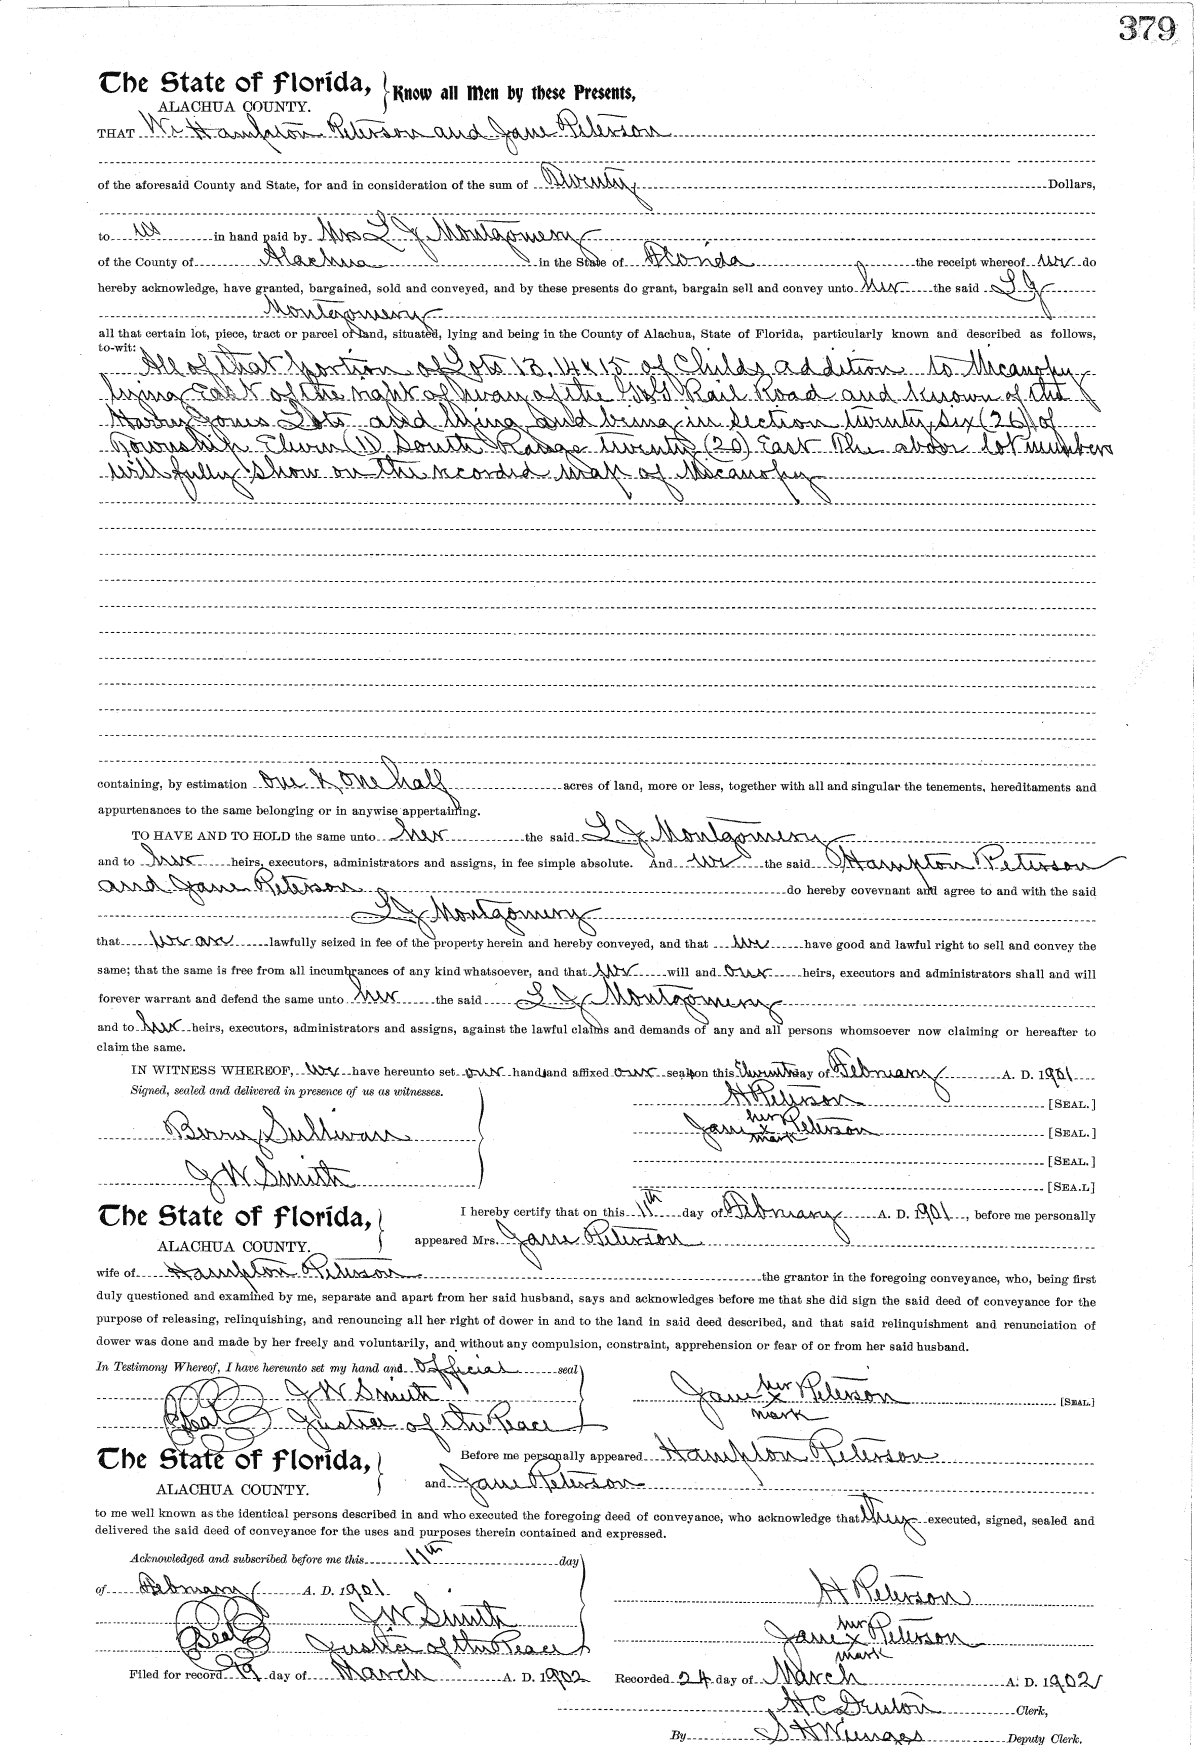 379
The State of Florida, Know all Men by these Presents,
ALACHUA COUNTY.
THAT We Hampton Peterson and Jane Peterson
of the aforesaid County and State, for and in consideration of the sum of Twenty Dollars,
to us in hand paid by Mrs L J Montgomery
of the County of Alachua in the State of Florida the receipt whereof we do
hereby acknowledge, have granted, bargained, sold and conveyed, and by these presents do grant, bargain sell and convey unto her the said L J
Montgomery
all that certain lot, piece, tract or parcel of land, situated, lying and being in the County of Alachua, State of Florida, particularly known and described as follows,
to-wit:
All of that portion of Lots 13, 14 & 15 of Childs addition to Micanopy
lying East of the right of way of the G & G Rail Road and known of the
Jones Lots and lying and being in section twenty six (26) of
Township Eleven (11) South Range twenty (20) East The above lot numbers
will fully show on the recorded map of Micanopy
containing, by estimation one & one half acres of land, more or less, together with all and singular the tenements, hereditaments and
appurtenances to the same belonging or in anywise appertaining.
TO HAVE AND TO HOLD the same unto her the said L J Montgomery
and to her heirs, executors, administrators and assigns, in fee simple absolute. And we the said Hampton Peterson
and Jane Peterson do hereby covevnant and agree to and with the said
L J Montgomery
that we are lawfully seized in fee of the property herein and hereby conveyed, and that we have good and lawful right to sell and convey the
same; that the same is free from all incumbrances of any kind whatsoever, and that we will and our heirs, executors and administrators shall and will
forever warrant and defend the same unto her the said L J Montgomery
and to her heirs, executors, administrators and assigns, against the lawful claims and demands of any and all persons whomsoever now claiming or hereafter to
claim the same.
IN WITNESS WHEREOF, we have hereunto set our hands and affixed our seals on this day of February A. D. 1901
Signed, sealed and delivered in presence of us as witnesses. H Peterson [SEAL.]
Berry Sullivan Jane her x mark Peterson [SEAL.]
[SEAL.]
J W Smith [SEA.L]
The State of Florida, I hereby certify that on this 11th day of February A. D. 1901, before me personally
ALACHUA COUNTY. appeared Mrs. Jane Peterson
wife of Hampton Peterson the grantor in the foregoing conveyance, who, being first
duly questioned and examined by me, separate and apart from her said husband, says and acknowledges before me that she did sign the said deed of conveyance for the
purpose of releasing, relinquishing, and renouncing all her right of dower in and to the land in said deed described, and that said relinquishment and renunciation of
dower was done and made by her freely and voluntarily, and without any compulsion, constraint, apprehension or fear of or from her said husband.
In Testimony Whereof, I have hereunto set my hand and official seal
J W Smith Jane her x mark Peterson [SEAL.]
Seal Justice of the Peace
The State of Florida, Before me personally appeared Hampton Peterson
ALACHUA COUNTY. and Jane Peterson
to me well known as the identical persons described in and who executed the foregoing deed of conveyance, who acknowledge that they executed, signed, sealed and
delivered the said deed of conveyance for the uses and purposes therein contained and expressed.
Acknowledged and subscribed before me this 11th day
of February A. D. 1901 H Peterson
J W Smith Jane her x mark Peterson
Seal Justice of the Peace
Filed for record 19 day of March A. D. 1902 Recorded 24 day of March A. D. 1902
H C Denton Clerk,
By S H Wienges Deputy Clerk.